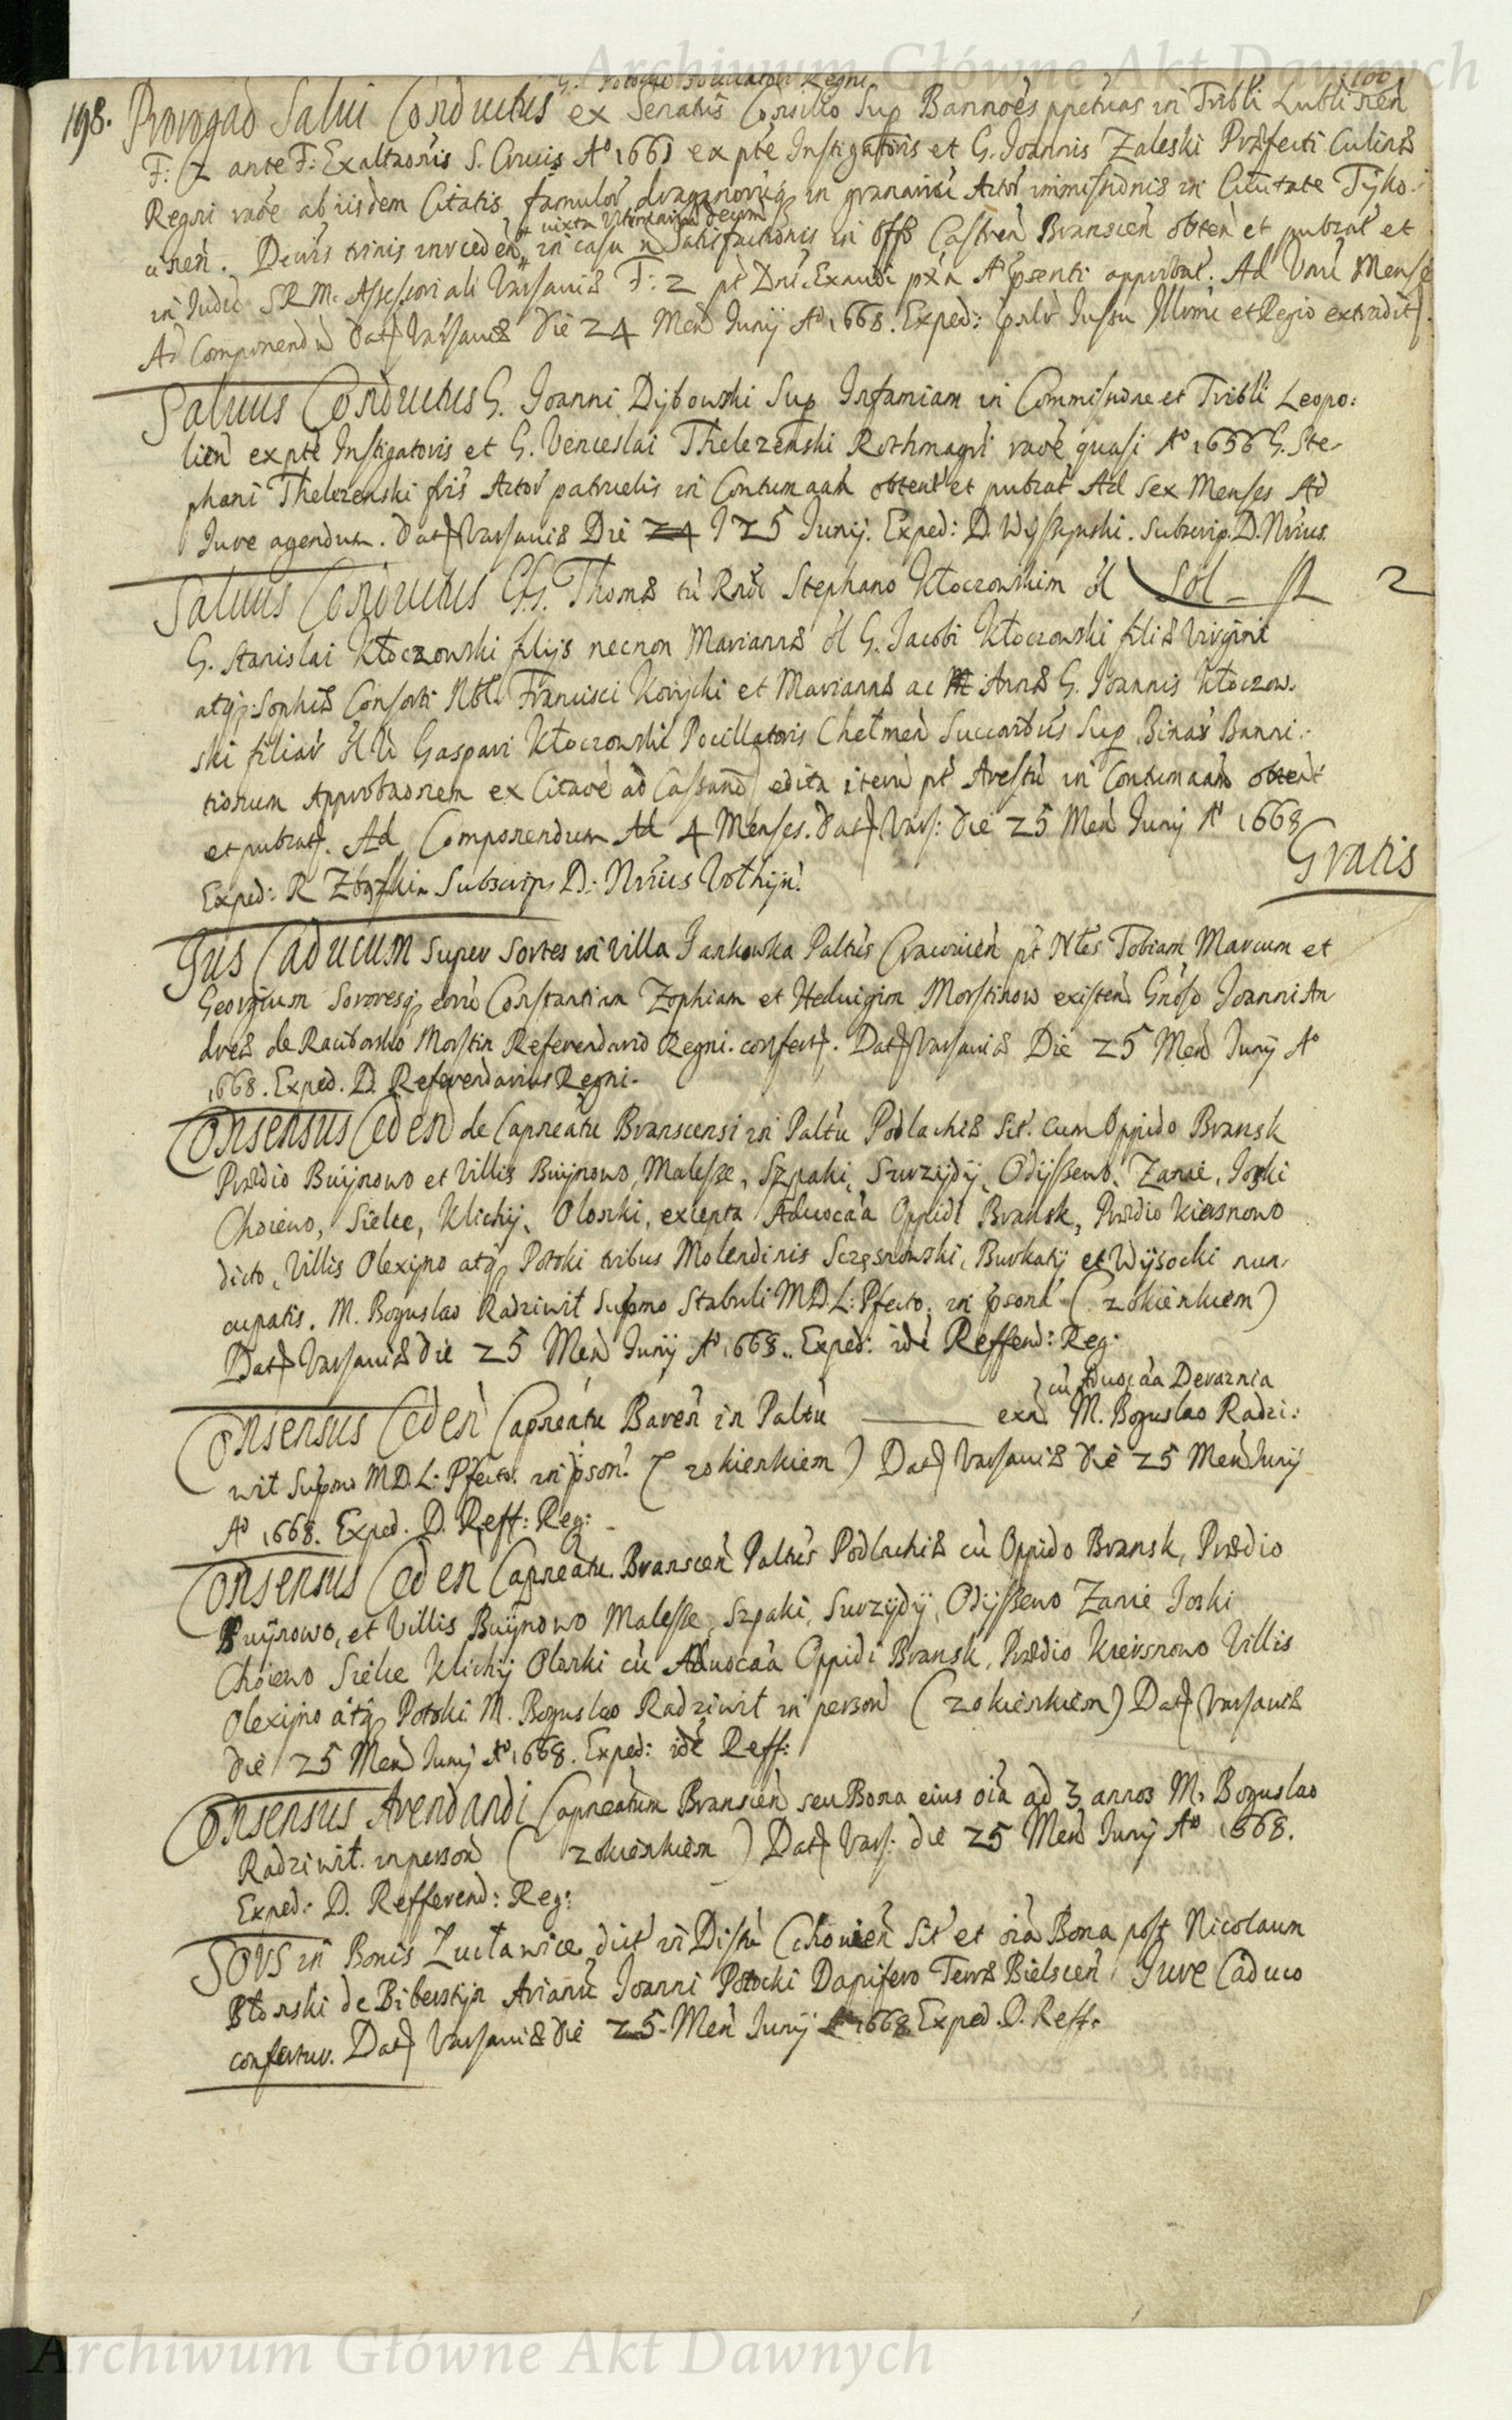 Archiwum Główne Akt Dawnych
100
G. Potocki Regni
198. Prorogaō Salui Conductus ex Senatus Consilio Sup Bannoēs ppetuas in Tribli Lublinen
F: 2 ante F: Exaltaōnis S. Crucis Aº 1661 ex pte Instigatoris et G. Joannis Zaleski Præfecti Culinæ
Regni raōe ab iisdem Citatis famulor draganorūq in granarici Actor immissionis in Ciuitate Tyko-
cinen. Decurs trinis in casu n Satisfactionis in Offo Castren Branscen obten et publat et
iuxta Decurm
in Judio SRM. Assessoriali Varsauiæ F: 2 pt Dnic Exaudi pxa Aº psenti approbat. Ad Vnu Mense
Ad Componendū Dat Varsauiæ Die 24 Men Junij Aº 1668. Exped: Jussu Illmi et Regio extradit.
Saluus Conductus G. Joanni Dybowski Sup Infamiam in Commissione et Tribli Leopo:
lien ex pte Instigatoris et G. Venceslai Thelezenski Rothmagri raōe quasi Aº 1656 G. Ste-
phani Thelezenski fris Actor patruelis in Contumaam obtent et publat Ad Sex Menses Ad
Jure agendum. Dat Varsauiæ Die 24 25 Junij. Exped: D. Subscrip. D. Nrius.
Saluus Conductus GG. Thomæ tū Rndi Stephano Kłoczowskim ol Sol _ fl 2
G. Stanislai Kłoczowski filijs necnon Mariannæ ol G. Jacobi Kłoczowski filiæ Virgini
atq Sophiæ Consorti Nbl. Francisci Korycki et Mariannæ ac Annæ G. Joannis Kłoczow-
ski filiar Gaspari Kłoczowski Pocillatoris Chelmen Succoribus Sup Binar Banni-
tionum Approbaōnem ex Citaōe ad Cassand edita iterū pt Arestū in Contumaam obtent
et publat. Ad Componendum Ad 4 Menses. Dat Vars: Die 25 Men Junij Aº 1668
Exped: R. Subscrip. D: Nrius
Gratis
Jus Caducum super Sortes in Villa Jankowka Paltus Cracouien pt Nles Tobiam Marcum et
Georgium Sororesq eorū Constantiam Zophiam et Heduigim Morstinow existen. Gnoso Joanni An
dreæ de Raciborsko Morstin Referendario Regni. confert. Dat Varsauiæ Die 25 Men Junij Aº
1668. Exped. D. Referendarius Regni.
Consensus Ceden de Capneatu Branscensi in Paltu Podlachiæ Sit. cum Oppido Bransk
Prædio Buijnowo et Villis Buijnowo, Malesse, Szpaki, Surzydij, Odijssewo, Zanie, Joski
Choiewo, Sielce, Klichij, Olszki, excepta Aduocaa Oppidi Bransk, Prædio Kiersnowo
dicto, Villis Olexijno atq Potoki tribus Molendinis Sczęsnowski, Burkatij et Wijsocki nun-
cupatis. M. Boguslao Radziwił Supmo Stabuli MDL: Pfecto. in psona (z okienkiem)
Dat Varsauiæ Die 25 Men Junij Aº 1668. Exped: ide Reffend: Reg:
cū Aduocaa Devaznia
Consensus Ceden Capneatu Baren in Paltu ——— M. Boguslao Radzi:
wił Supmo MDL: Pfecto. in pson. (z okienkiem) Dat Varsauiæ Die 25 Men Junij
Aº 1668. Exped. D. Reff: Reg:
Consensus Ceden Capneatu. Branscen Paltus Podlachiæ cū Oppido Bransk, Prædio
Buijnowo, et Villis Buijnowo Malesse, Szpaki, Surzydij, Odijssewo Zanie Joski
Choiewo Sielce Klichij Olszki cū Aduocaa Oppidi Bransk, Prædio Kiersnowo Villis
Olexijno atq Potoki M. Boguslao Radziwił in person (z okienkiem) Dat Varsauiæ
Die 25 Men Junij Aº 1668. Exped: ide Reff:
Consensus Arendandi Capneatum Branscen seu Bona eius oīa ad 3 annos M. Boguslao
Radziwił. in person (z okienkiem) Dat Vars: die 25 Men Junij Aº 1668.
Exped: D. Refferend: Reg:
Sors in Bonis Lucławice dict in Distu Czchouien Sit et oīa Bona post Nicolaum
Błonski de Biberstijn Arianū Joanni Potocki Dapifero Terræ Bielscen Jure Caduco
confertur. Dat Varsauiæ Die 25 Men Junij 1668 Exped. D. Reff.
Archiwum Główne Akt Dawnych